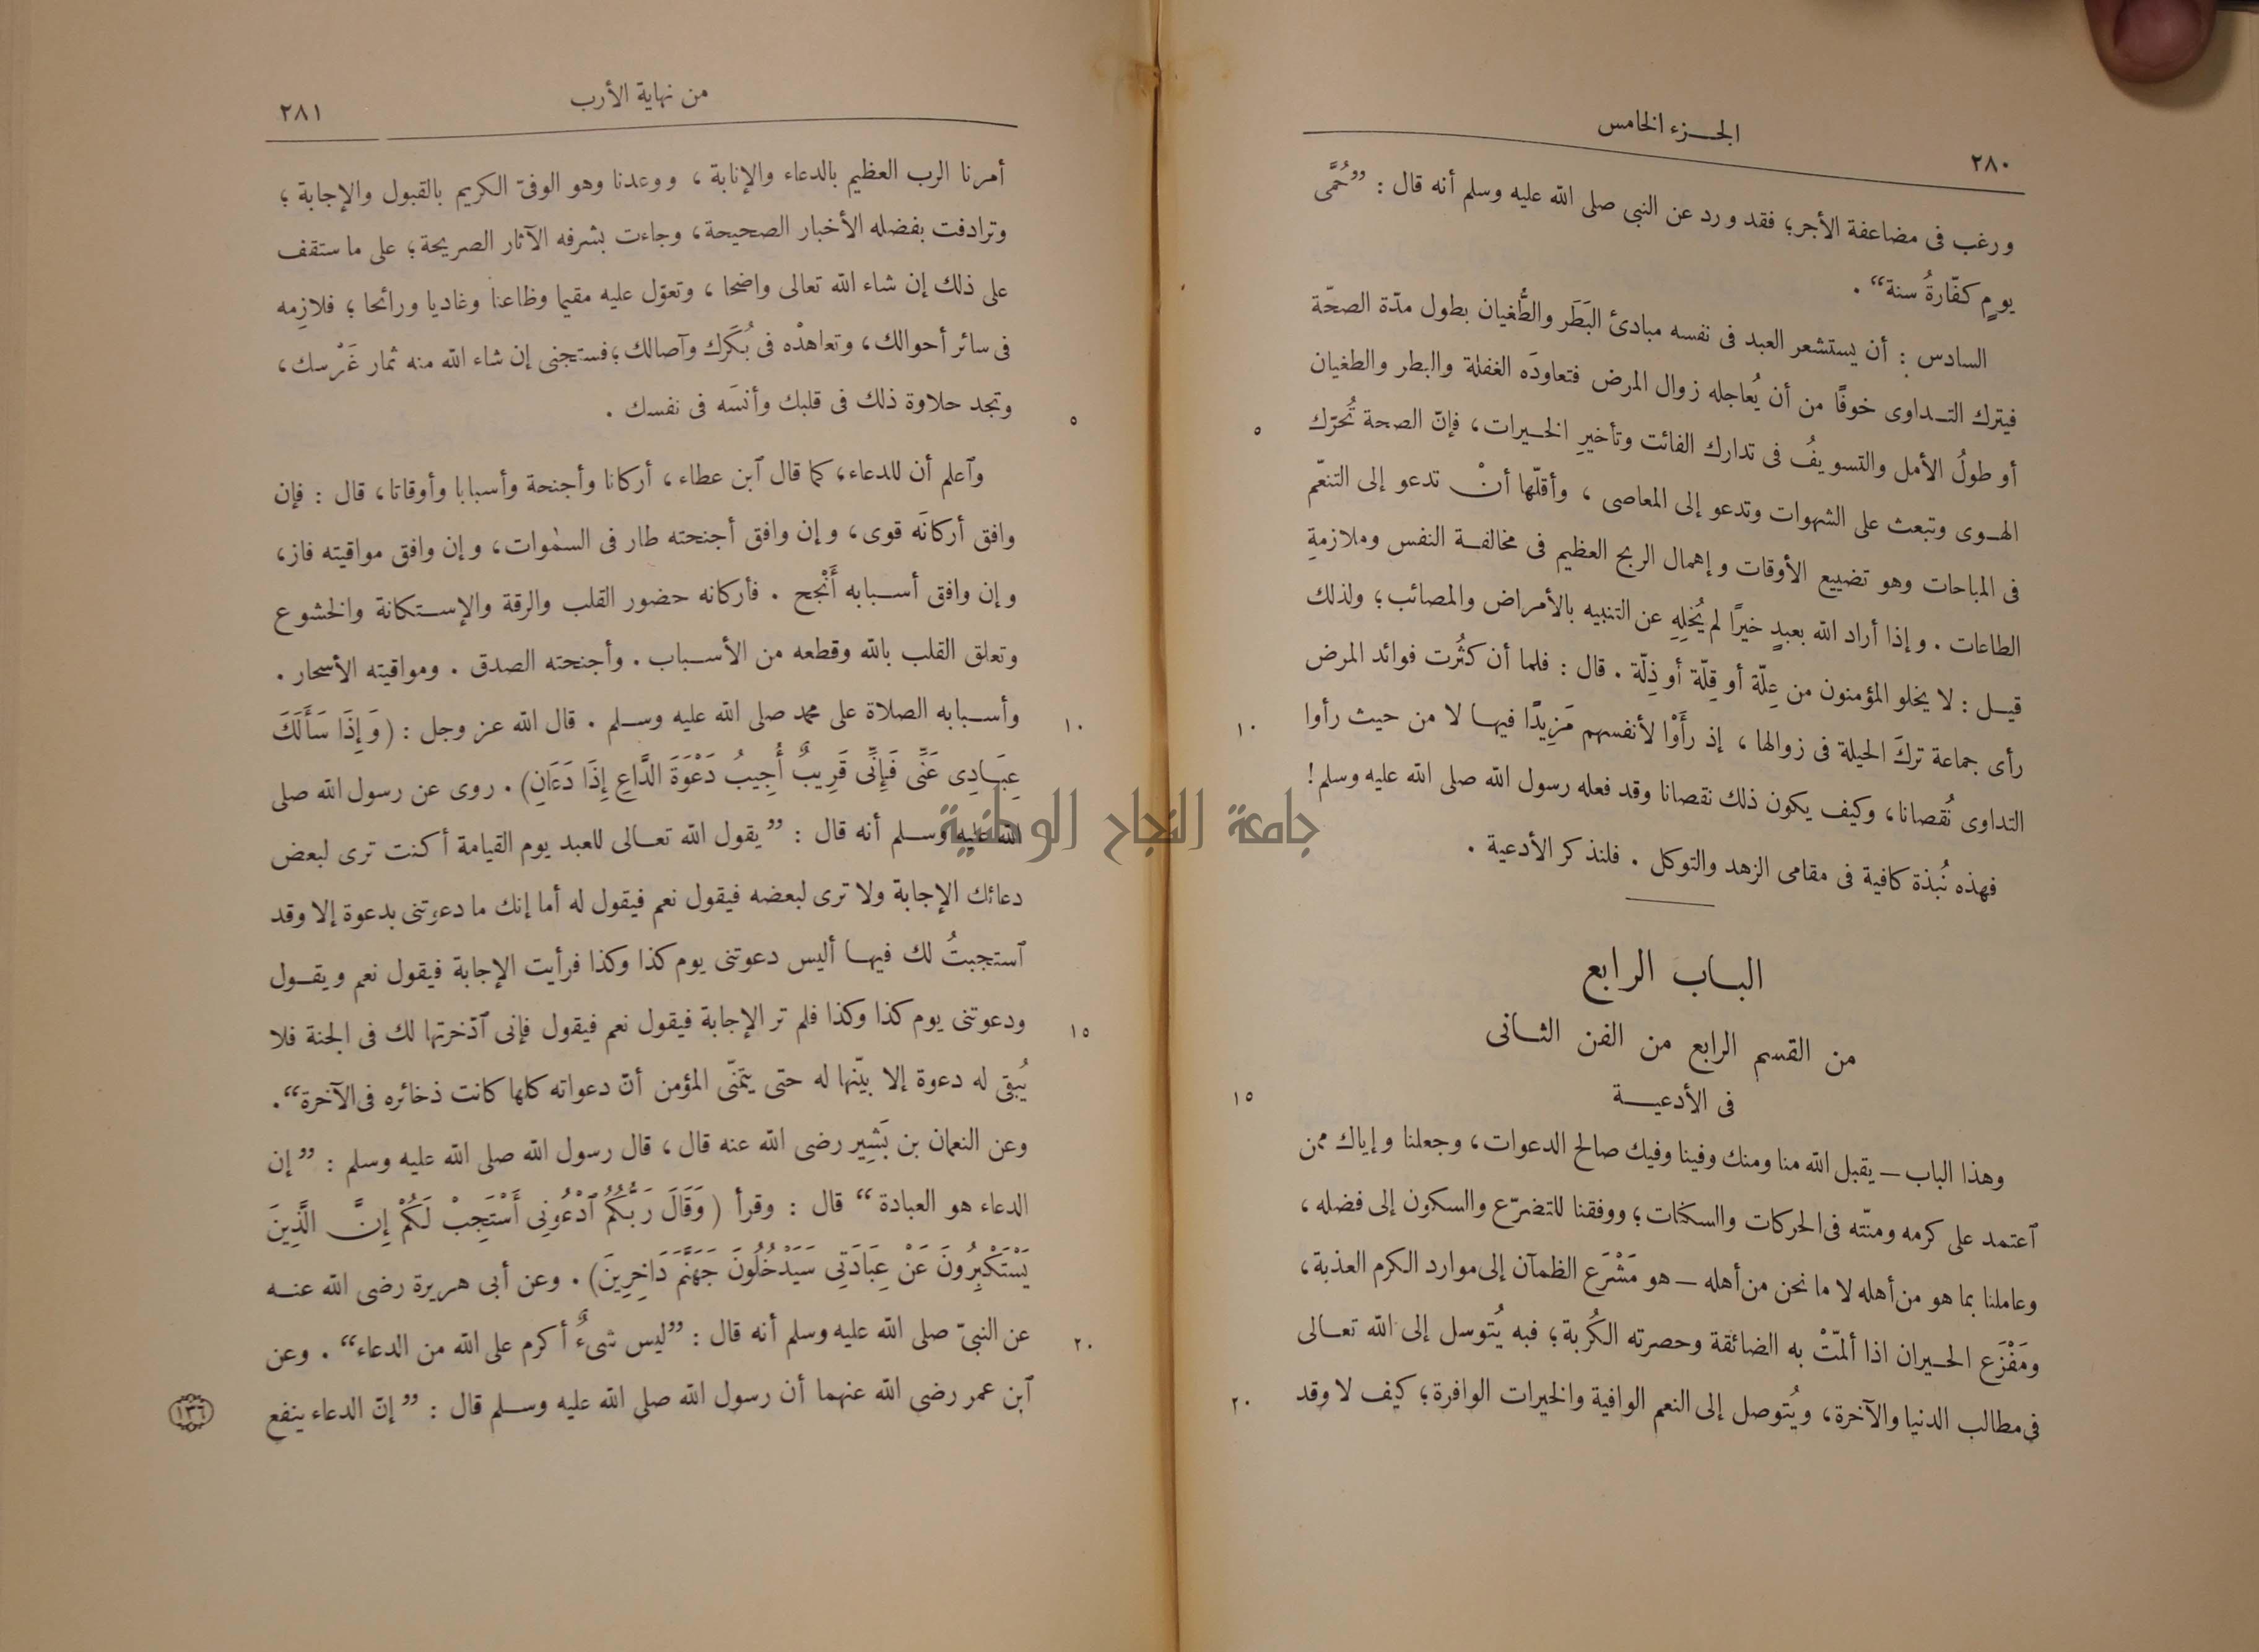 الجـزء الخامس
٢٨٠
ورغب فى مضاعفة الأجر؛ فقد ورد عن النبى صلى الله عليه وسلم أنه قال : ”حُمَّى
يومٍ كفّارةُ سنة“ .
السادس : أن يستشعر العبد فى نفسه مبادئ البَطَر والطُّغيان بطول مدّة الصحّة
فيترك التـداوى خوفًا من أن يُعاجله زوال المرض فتعاودَه الغفلة والبطر والطغيان
٥
أو طولُ الأمل والتسويفُ فى تدارك الفائت وتأخيرِ الخـيرات، فإنّ الصحة تُحرّك
الهـوى وتبعث على الشهوات وتدعو إلى المعاصى ، وأقلّها أنْ تدعو إلى التنعّم
فى المباحات وهو تضييع الأوقات وإهمال الربح العظيم فى مخالفـة النفس وملازمةِ
الطاعات . وإذا أراد الله بعبدٍ خيرًا لم يُخلِهِ عن التنبيه بالأمراض والمصائب؛ ولذلك
قيـل : لا يخلو المؤمنون من عِلّة أو قِلّة أو ذِلّة . قال : فلما أن كثُرت فوائد المرض
١٠
رأى جماعة تركَ الحيلة فى زوالها ، إذ رأَوْا لأنفسهم مَزِيدًا فيهـا لا من حيث رأوا
التداوى نُقصانا، وكيف يكون ذلك نقصانا وقد فعله رسول الله صلى الله عليه وسلم!
فهذه نُبذة كافية فى مقامى الزهد والتوكل . فلنذكر الأدعية .
البـاب الرابع
من القسم الرابع من الفن الثـانى
١٥
فى الأدعيـــة
وهذا الباب — يقبل الله منا ومنك وفينا وفيك صالح الدعوات، وجعلنا وإياك ممن
آعتمد على كرمه ومنّته فى الحركات والسكنات؛ ووفقنا للتضرّع والسكون إلى فضله ،
وعاملنا بما هو من أهله لا ما نحن من أهله — هو مَشْرَع الظمآن إلى موارد الكرم العذبة،
ومَفْزَع الحـيران اذا ألمّتْ به الضائقة وحصرته الكُربة؛ فبه يُتوسل إلى الله تعـالى
٢٠
فى مطالب الدنيا والآخرة، ويُتوصل إلى النعم الوافية والخيرات الوافرة؛ كيف لا وقد
من نهاية الأرب
٢٨١
أمرنا الرب العظيم بالدعاء والإنابة ، ووعدنا وهو الوفىّ الكريم بالقبول والإجابة ؛
وترادفت بفضله الأخبار الصحيحة، وجاءت بشرفه الآثار الصريحة؛ على ما ستقف
على ذلك إن شاء الله تعالى واضحا ، وتعوّل عليه مقيما وظاعنا وغاديا ورائحا ؛ فلازِمه
فى سائر أحوالك، وتعاهدْه فى بُكَرك وآصالك؛ فستجنى إن شاء الله منه ثمار غَرْسك،
٥
وتجد حلاوة ذلك فى قلبك وأنسَه فى نفسك .
وآعلم أن للدعاء، كما قال آبن عطاء ، أركانا وأجنحة وأسبابا وأوقاتا، قال : فإن
وافق أركانَه قوى، وإن وافق أجنحته طار فى السمٰوات، وإن وافق مواقيته فاز،
وإن وافق أسـبابه أَنْجح . فأركانه حضور القلب والرقة والإستكانة والخشوع
وتعلق القلب بالله وقطعه من الأسـباب . وأجنحته الصدق . ومواقيته الأسحار .
١٠
وأسـبابه الصلاة على محمد صلى الله عليه وسـلم . قال الله عز وجل : (وَإِذَا سَأَلَكَ
عِبَـادِى عَنِّى فَإِنِّى قَرِيبٌ أُجِيبُ دَعْوَةَ الدَّاعِ إِذَا دَعَانِ) . روى عن رسول الله صلى
الله عليه وسـلم أنه قال : ”يقول الله تعـالى للعبد يوم القيامة أكنت ترى لبعض
دعائك الإجابة ولا ترى لبعضه فيقول نعم فيقول له أما إنك ما دعوتنى بدعوة إلا وقد
آستجبتُ لك فيهـا أليس دعوتنى يوم كذا وكذا فرأيت الإجابة فيقول نعم ويقـول
١٥
ودعوتنى يوم كذا وكذا فلم تر الإجابة فيقول نعم فيقول فإنى آدّخرتها لك فى الجنة فلا
يُبقى له دعوة إلا بيّنها له حتى يتمنّى المؤمن أنّ دعواته كلها كانت ذخائره فى الآخرة“.
وعن النعمان بن بَشِير رضى الله عنه قال ، قال رسول الله صلى الله عليه وسلم : ”إن
الدعاء هو العبادة“ قال : وقرأ (وَقَالَ رَبُّكُمُ ٱدْعُونِى أَسْتَجِبْ لَكُمْ إِنَّ الَّذِينَ
يَسْتَكْبِرُونَ عَنْ عِبَادَتِى سَيَدْخُلُونَ جَهَنَّمَ دَاخِرِينَ) . وعن أبى هريرة رضى الله عنـه
٢٠
عن النبىّ صلى الله عليه وسلم أنه قال : ”ليس شىءٌ أكرم على الله من الدعاء“ . وعن
آبن عمر رضى الله عنهما أن رسول الله صلى الله عليه وسـلم قال : ”إنّ الدعاء ينفع
١٣٦
جامعة النجاح الوطنية